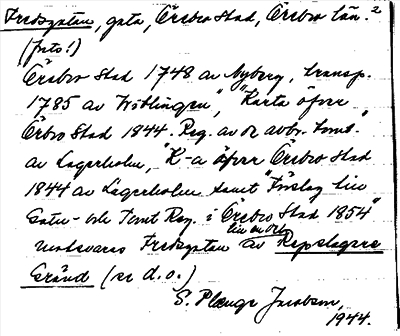 Fredsgatan, gata, Örebro stad, Örebro län.2
(forts.)
Örebro stad 1748 av Nyberg, transp.
1785 av Wiblingen", "Karta öfver
Örbro Stad 1844. Reg. av oc avbr. tomt."
av Lagerholm, "K-a öfver Örebro Stad
1844 av Lagerholm samt "Förslag till
Gatu- och Tomt Reg. i Örebro Stad 1854"
motsvaras Fredsgatan av Repslagare
till en del
Gränd (se d.o.)
S. Plænge Jacobson,
1944.